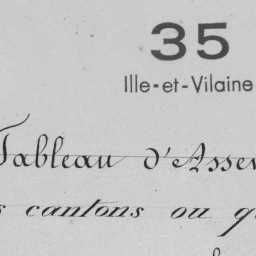 35
Ille-et-Vilaine
Tableau d'Assem
cantons ou